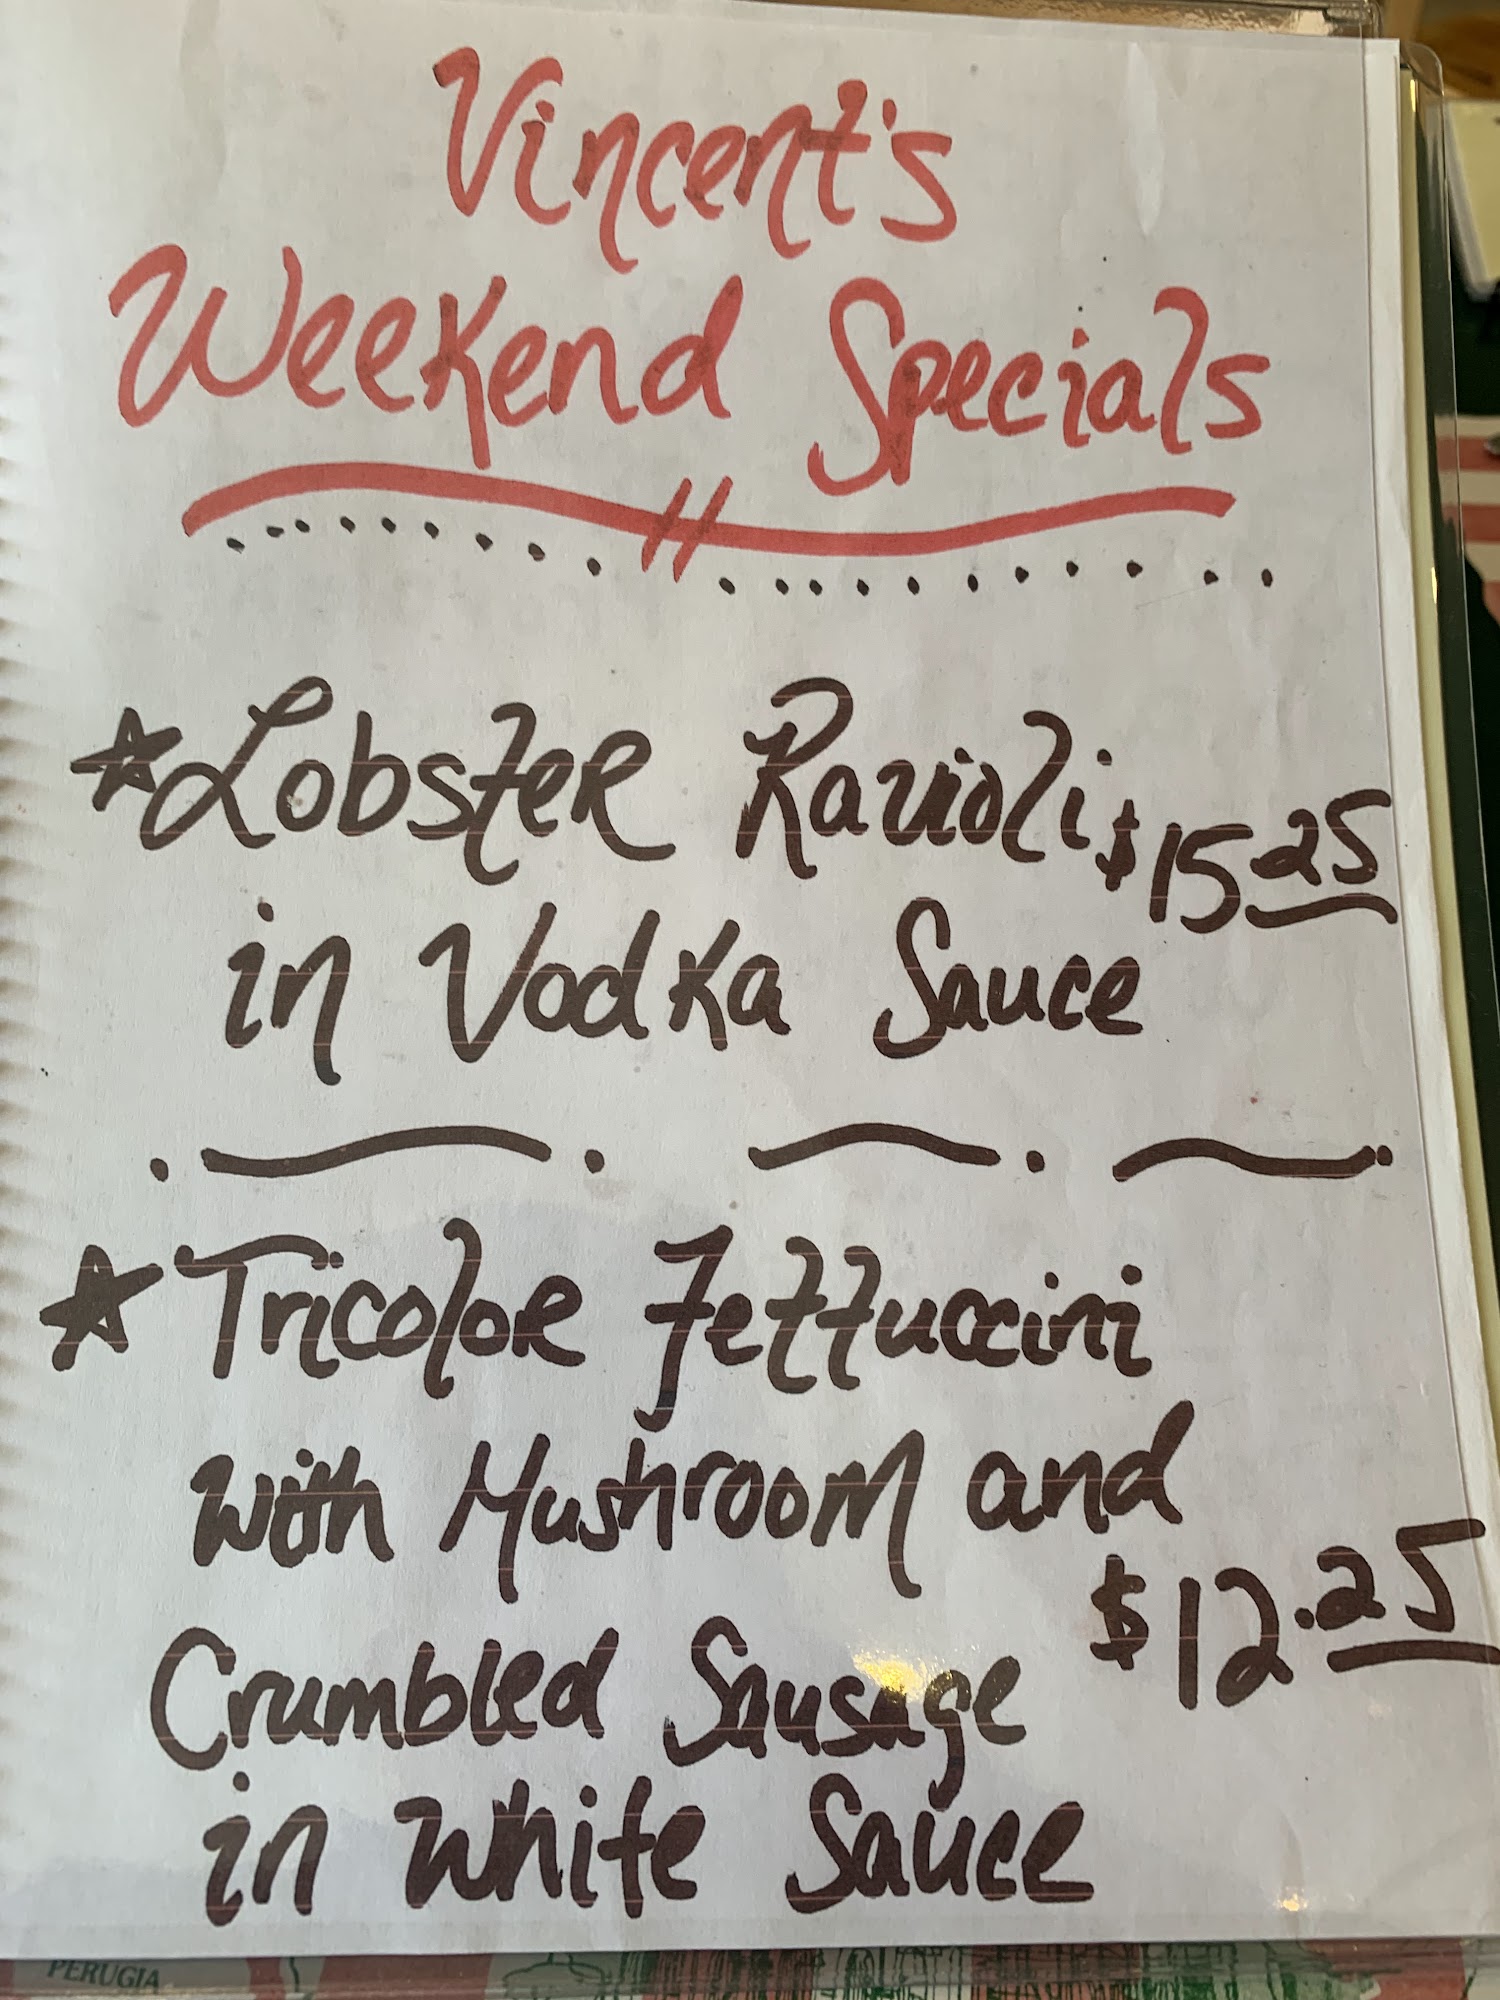 Vincent's
Weekend Specials
Lobster Ravioli $15.25
in Vodka Sauce
Tricolor Fettuccini
with Mushroom and
$12.25
Crumbled Sausage
in White Sauce
PERUGIA